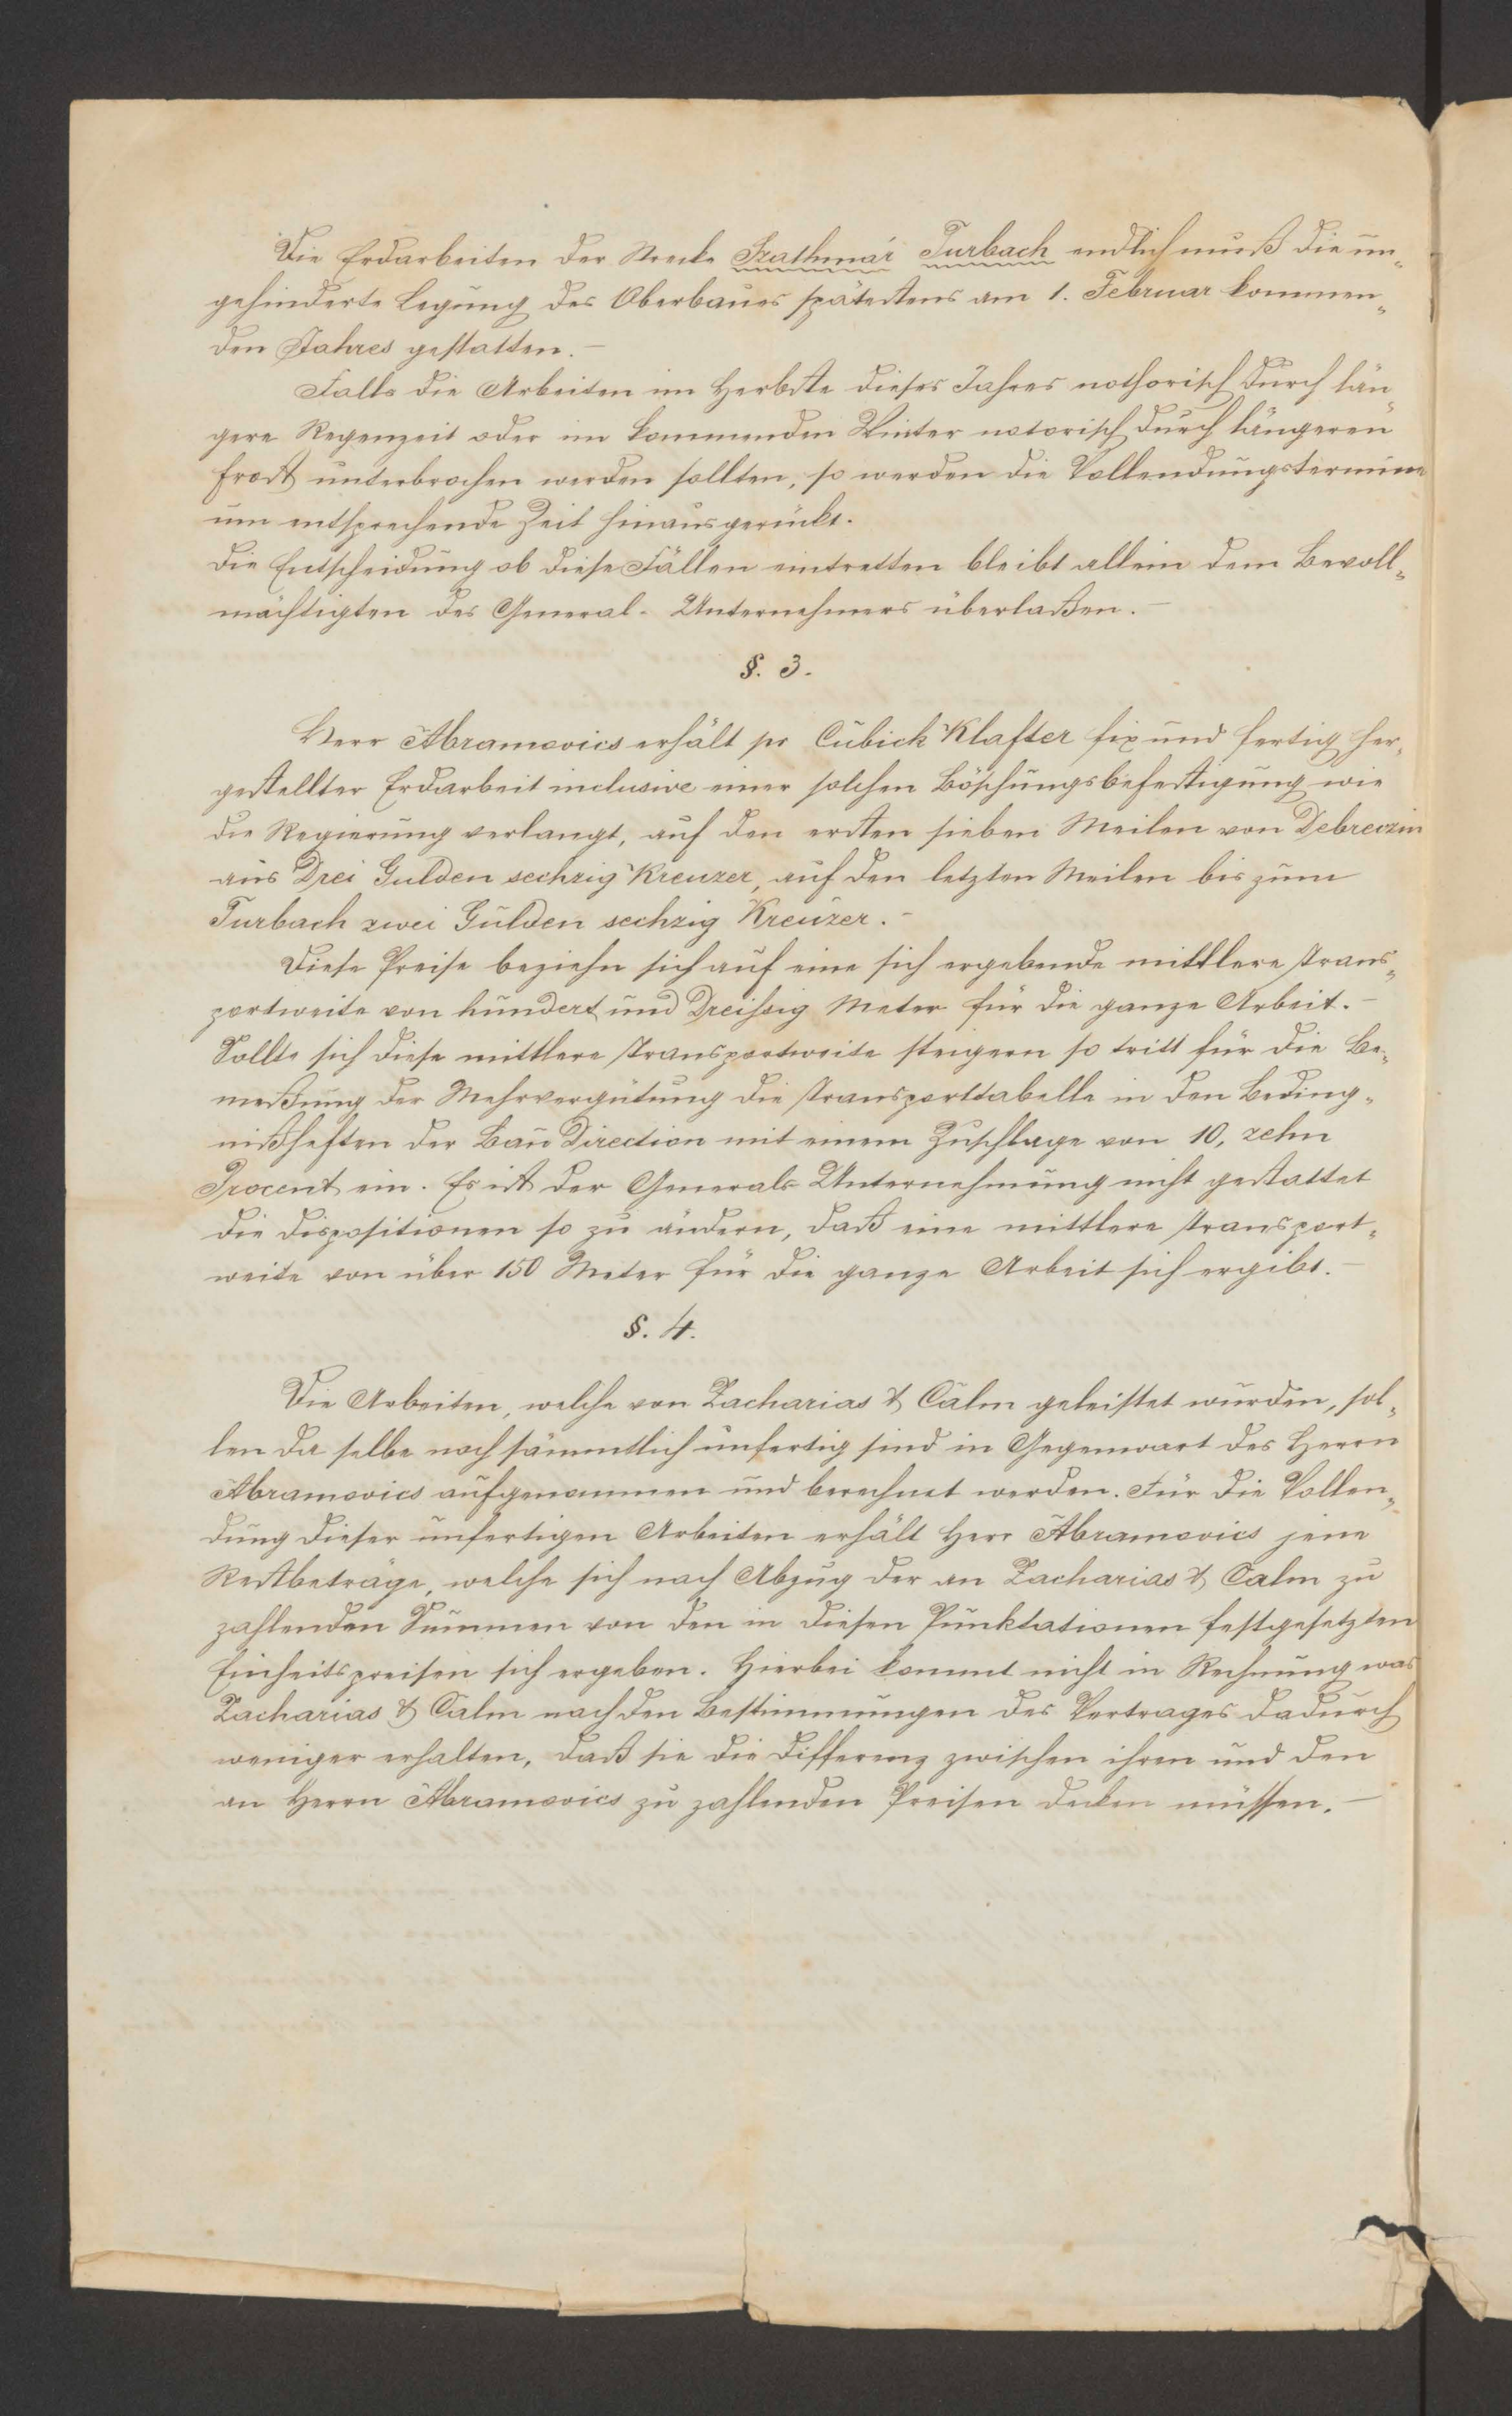 Die Erdarbeiten der Strecke Szathmár Turbach endlich muß die un„
gehinderte Legung des Oberbaues spätestens am 1. Februar kommen„
den Jahres gestatten.–
Falls die Arbeiten im Herbste dieses Jahres nothorisch durch län„
gere Regenzeit oder im kommenden Winter notorisch durch längeren
Frost unterbrochen werden sollten, so werden die Vollendungstermine
um entsprechende Zeit hinausgerückt.
Die Entscheidung ob diese Fällen eintretten bleibt allein dem Bevoll„
mächtigten des General-Unternehmers überlaßen.–
§. 3.
Herr Abramovics erhält pr Cubick Klafter fix und fertig her„
gestellter Erdarbeit inclusive einer solchen Böschungsbefestigung wie
die Regierung verlangt, auf den ersten sieben Meilen von Debreczin
aus Drei Gulden sechzig Kreuzer, auf den letzten Meilen bis zum
Turbach zwei Gulden sechzig Kreuzer.–
Diese Preise beziehn sich auf eine sich ergebende mittlere Trans„
portweite von hundert und Dreissig Meter für die ganze Arbeit.–
Sollte sich diese mittlere Transportweite steigern so tritt für die Be„
meßung der Mehrvergütung die Transporttabelle in den Beding„
nißheften der Bau Direction mit einem Zuschlage von 10, zehn
Procent ein. Es ist der Generals Unternehmung nicht gestattet
die Dispositionen so zu ändern, daß eine mittlere Transport„
weite von über 150 Meter für die ganze Arbeit sich ergibt.–
§. 4.
Die Arbeiten, welche von Zacharias & Calm geleistet wurden, sol„
len da selbe noch sämmtlich unfertig sind in Gegenwart des Herrn
Abramovics aufgenommen und berechnet werden. Für die Vollen„
dung dieser unfertigen Arbeiten erhält Herr Abramovics jene
Restbeträge, welche sich nach Abzug der an Zacharias & Calm zu
zahlenden Summen von den in diesen Punktationen festgesetzten
Einheitspreisen sich ergeben. Hierbei kommt nicht in Rechnung was
Zacharias & Calm nach den Bestimmungen des Vertrages dadurch
weniger erhalten, daß sie die Differenz zwischen ihren und den
an Herrn Abramovics zu zahlenden Preisen decken müssen.–